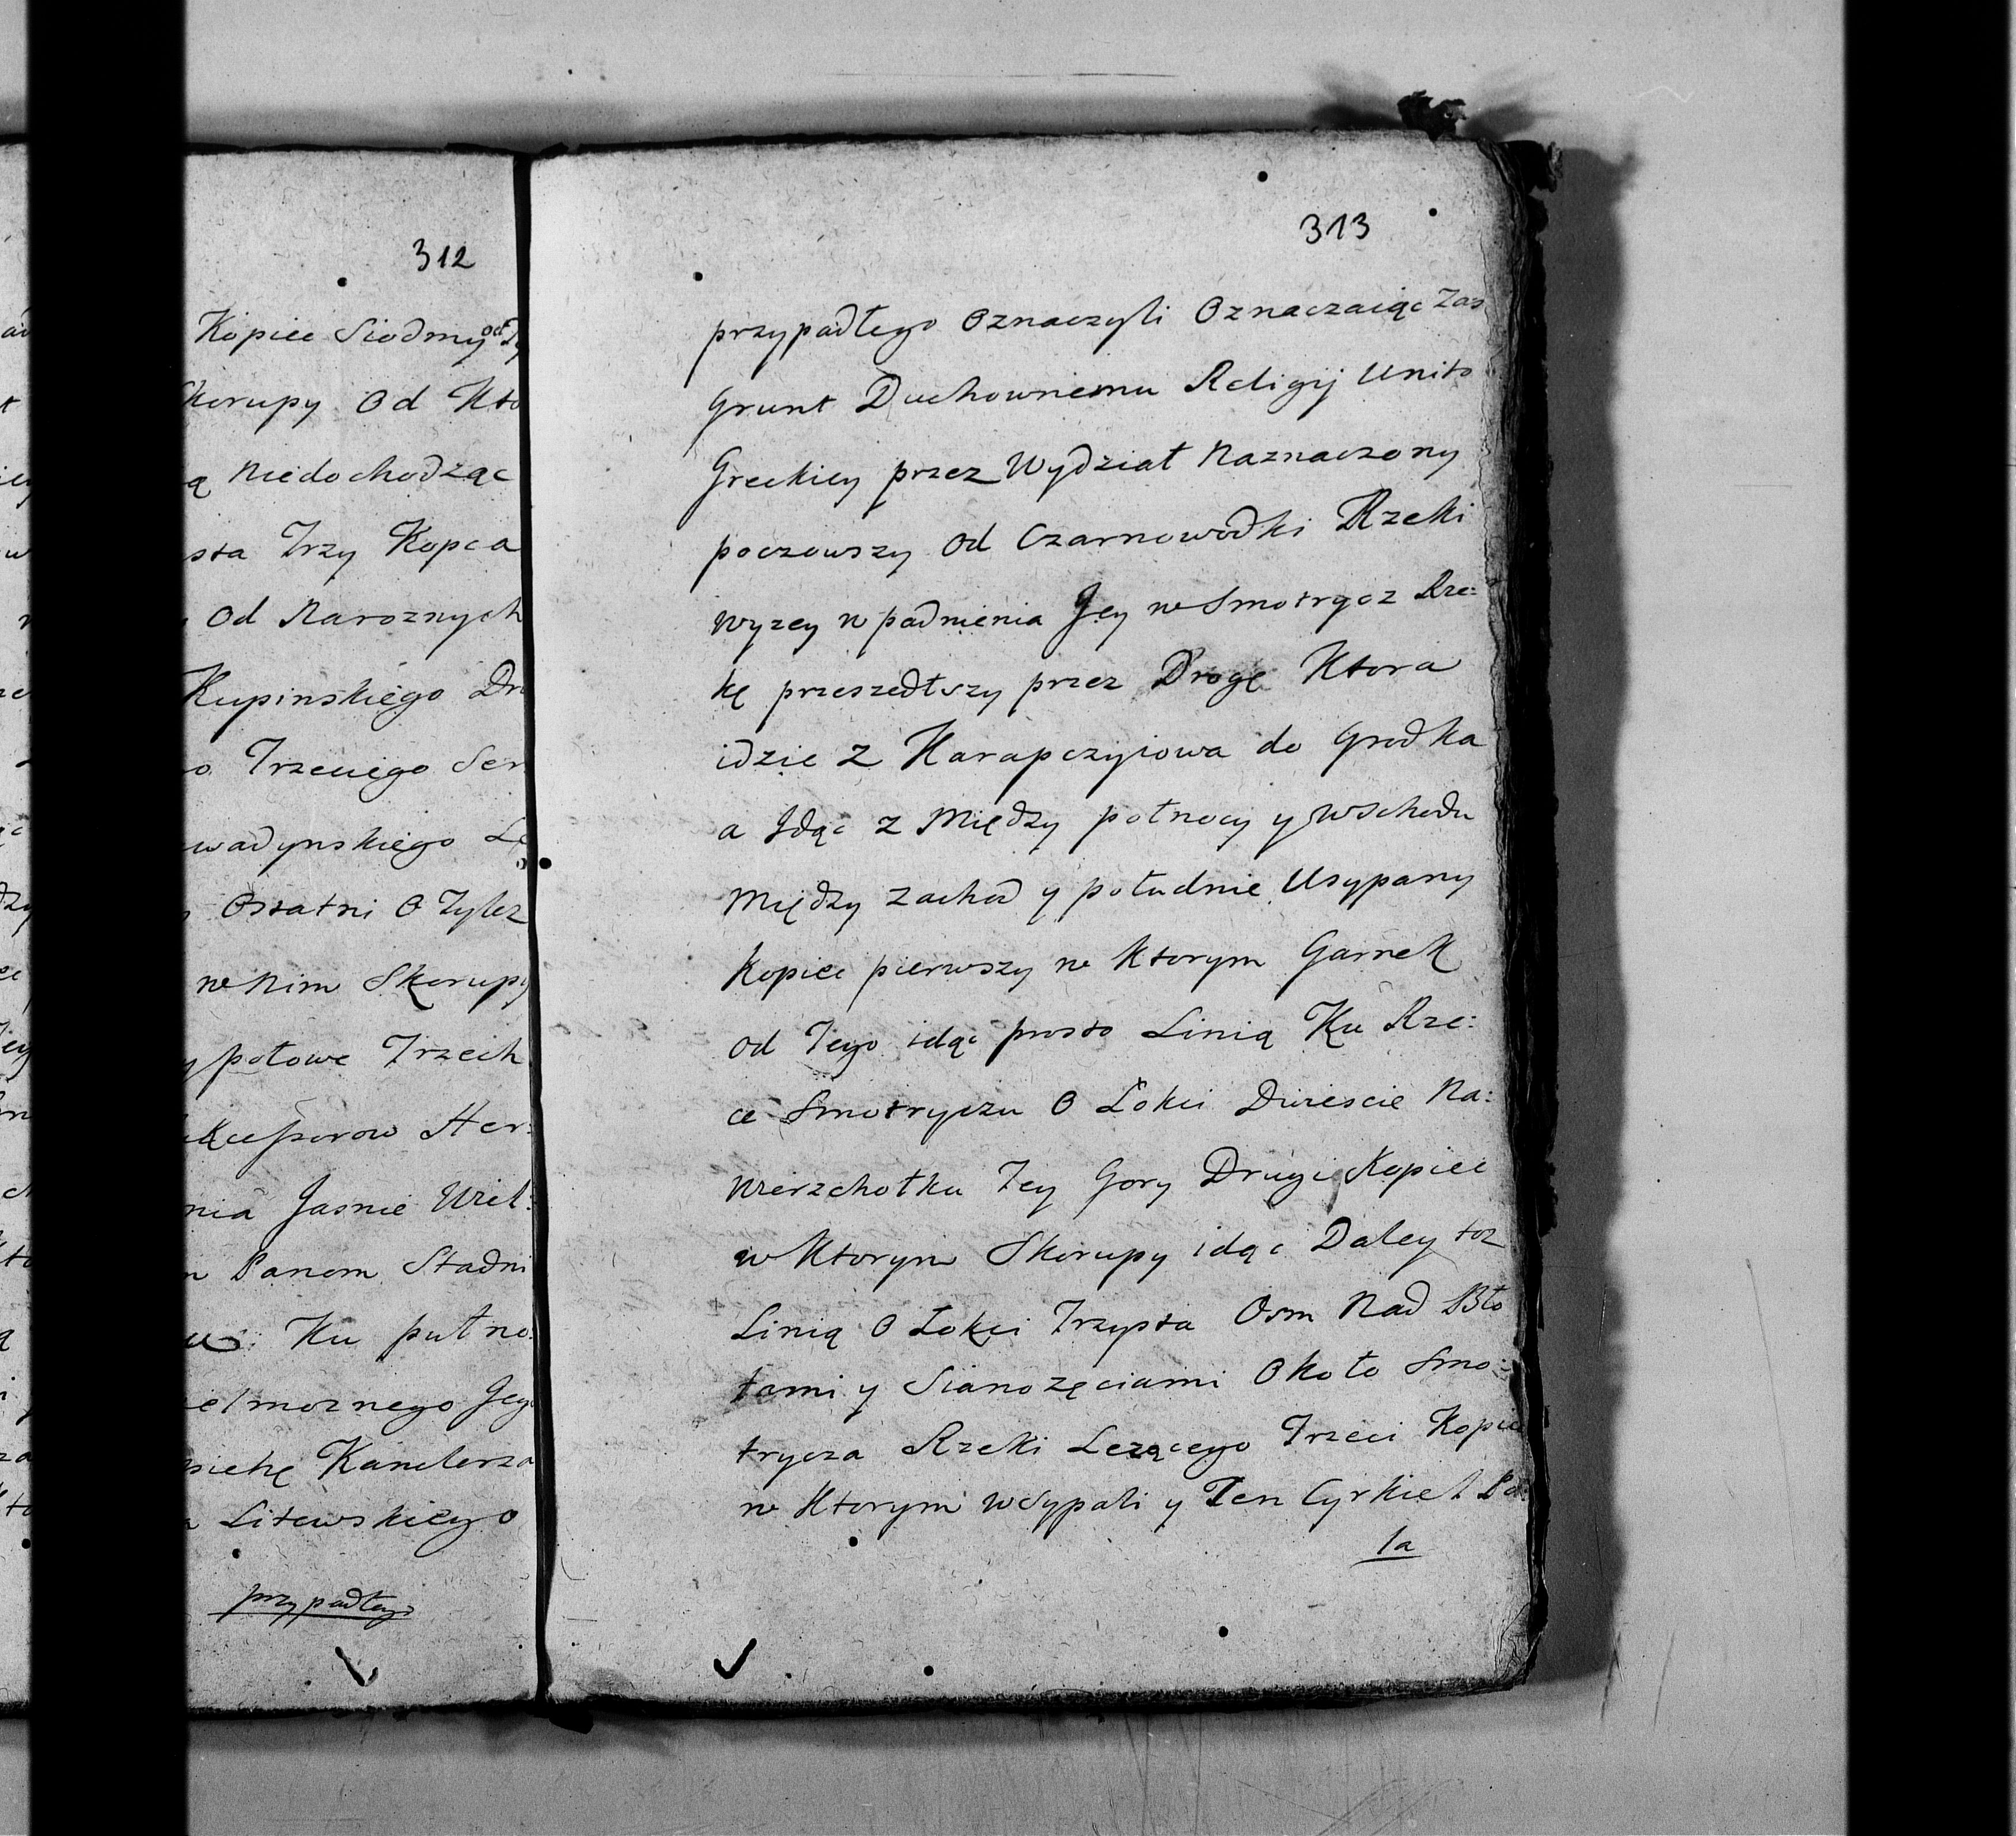 312
Kopiec Siodmy od
Skorupy Od Kto
ą Niedochodząc
sta Trzy Kopca
Od Naroznych
Kupinskiego Dr
o Trzeciego Ser
wadynskiego Le
Ostatni O Tylez
w Nim Skorupy
y połowe Trzech
Her:
nia Jasnie Wiel:
Panom Stadni
Ku pułno:
elmoznego Jeg
Kanclerza
Litewskiego
przypadłego
313
przypadłego Oznaczyli Oznaczaiąc Zas
Grunt Duchownemu Religij Unito
Greckiey przez Wydział Naznaczony
począwszy Od Czarnowodki Rzeki
wyzey wpadnienia Jey w Smotrycz Rze:
kę przeszedłszy przez Drogę Ktora
idzie z Karapczyiowa do Grodka
a Idąc z Między połnocy y Wschodu
Między Zachod y południe Usypany
Kopiec pierwszy w Ktorym Garnek
od Tego idąc prosto Linią Ku Rze:
ce Smotryczu O Łokci Dwiescie Na:
wierzchołku Tey Gory Drugi Kopiec
w Ktorym Skorupy idąc Daley toz
Linią O Łokci Trzysta Osm Nad Bło
tami y Sianozęciami Około Smo:
trycza Rzeki Lezącego Trzeci Kopiec
w Ktorym Wsypali y Ten Cyrkiel Po:
la